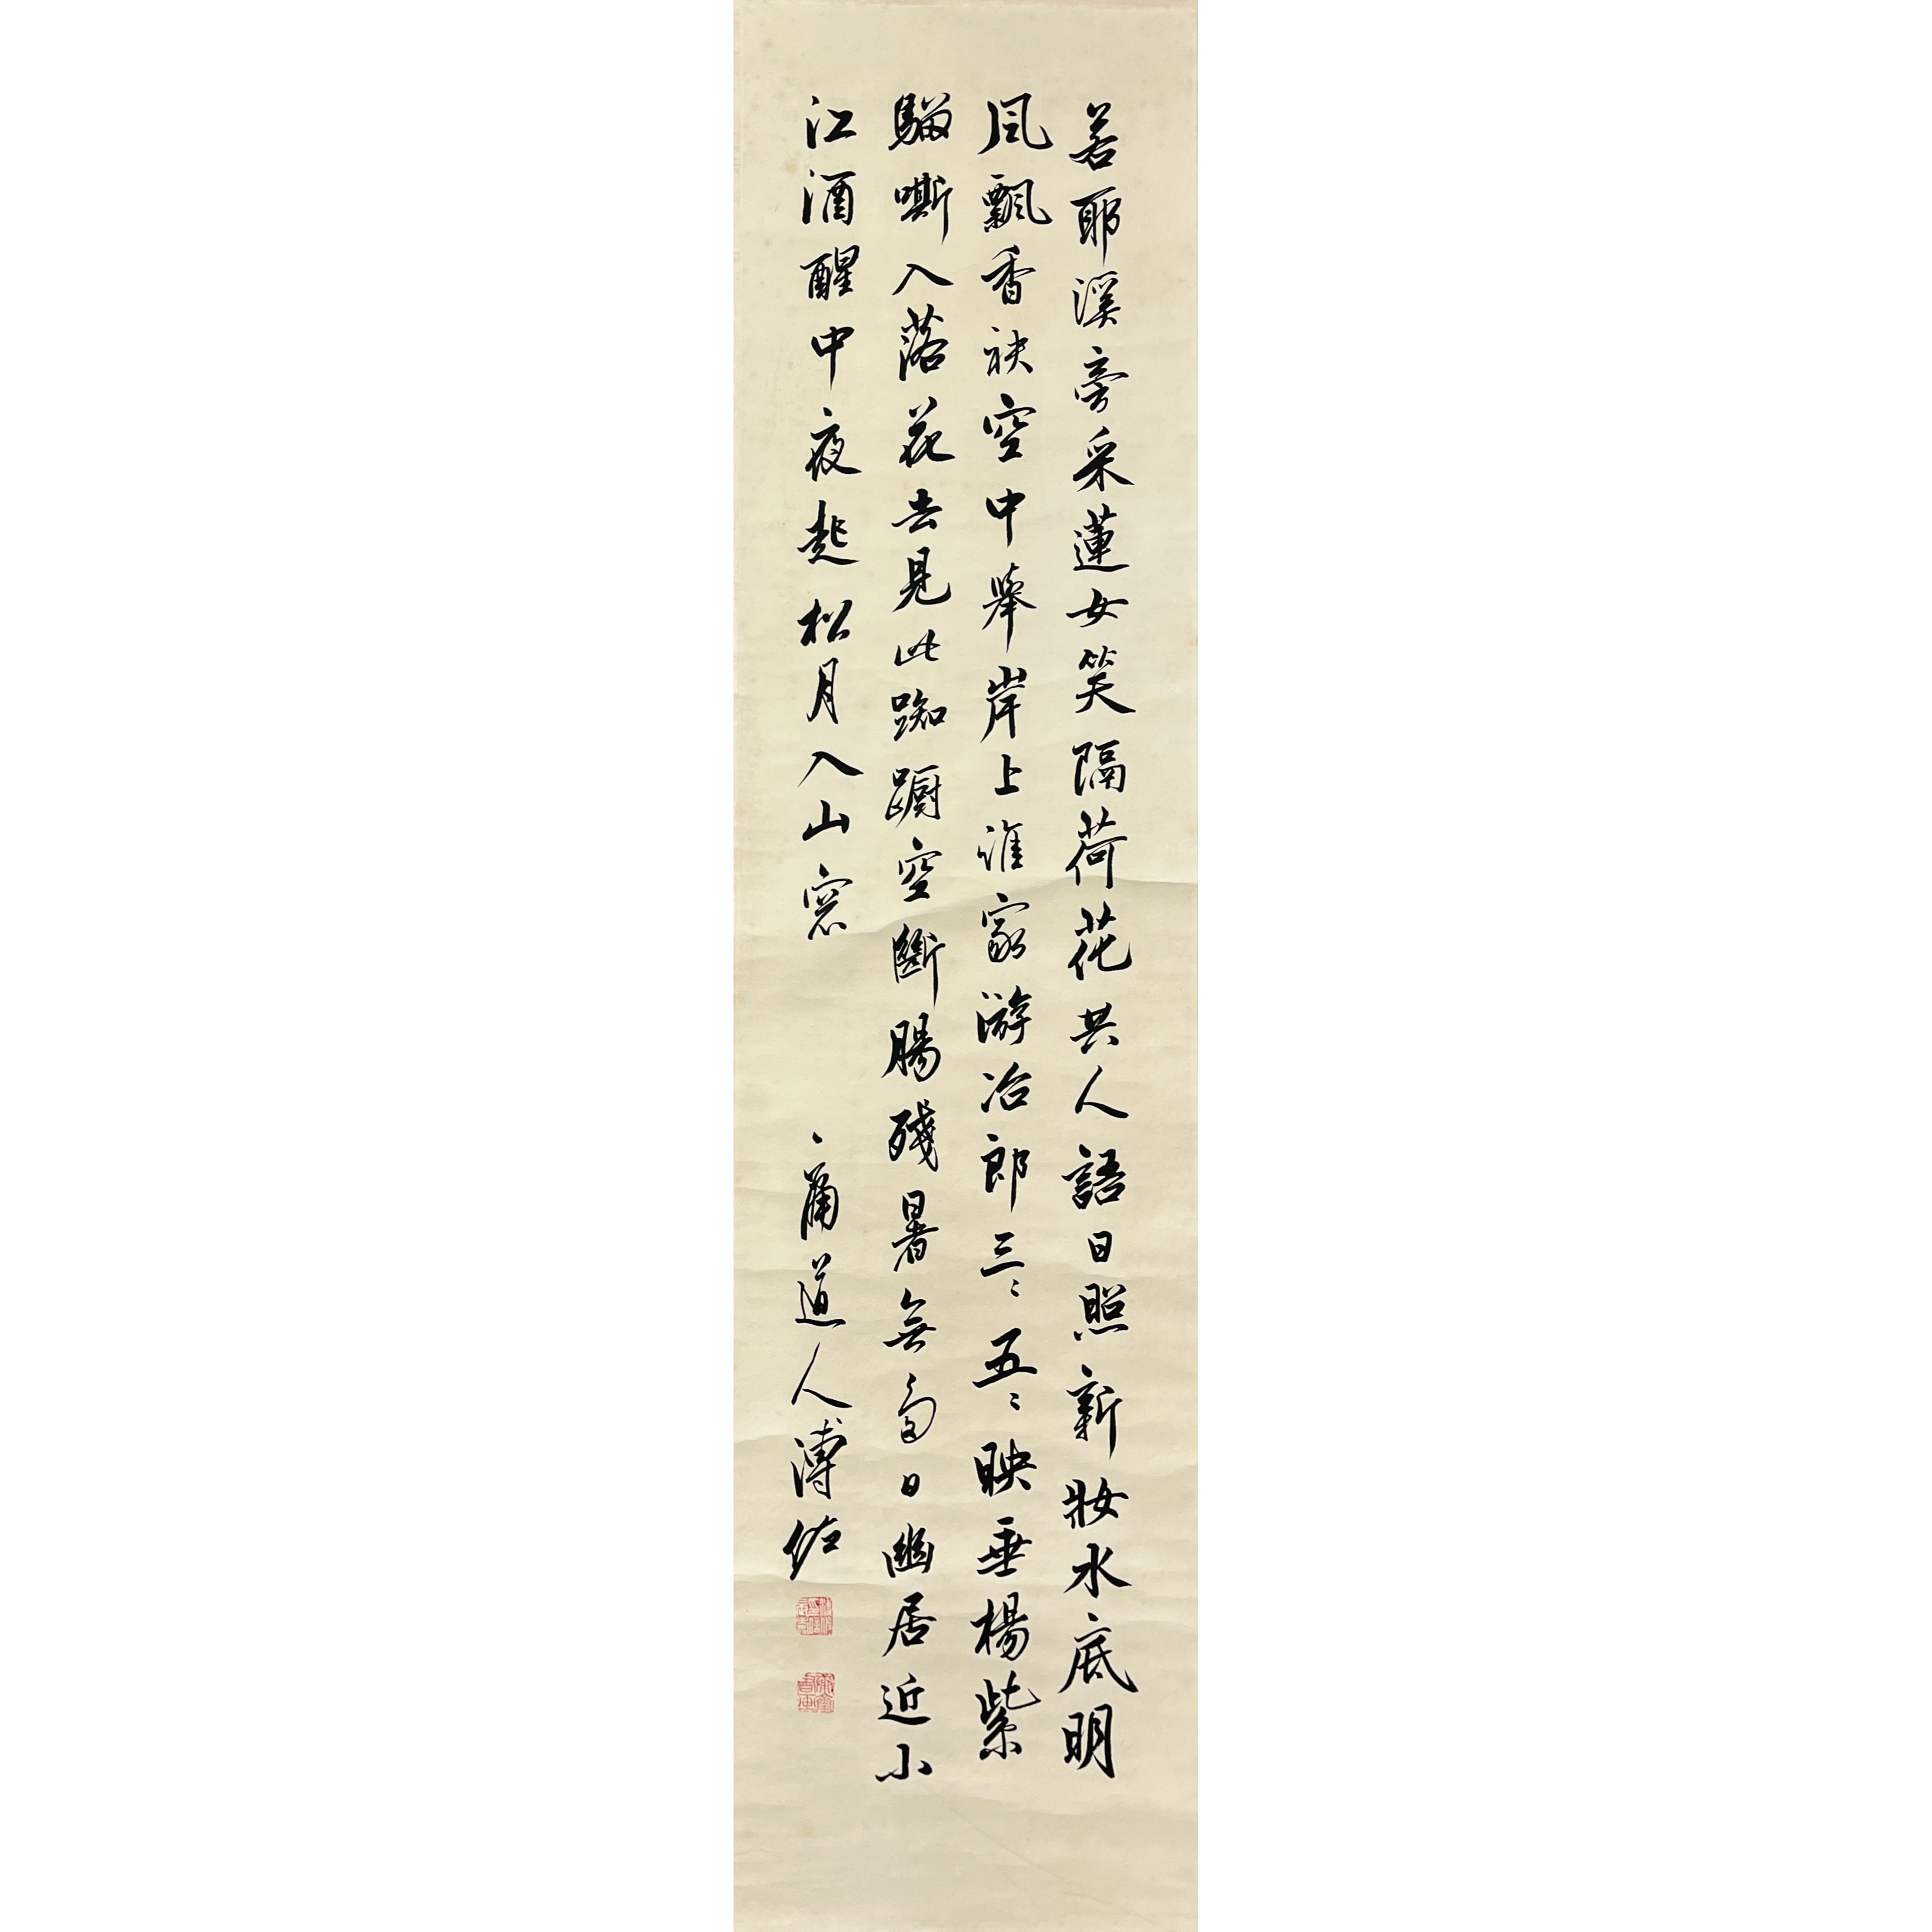 若耶溪旁采蓮女笑隔荷花共人語日照新妝水底明
風飄香袂空中舉岸上誰家游冶郎三〻五〻映垂楊紫
騮嘶入落花去見此踟躕空斷腸殘暑無多日幽居近小
江酒醒中夜起松月入山窓
庸道人溥佐